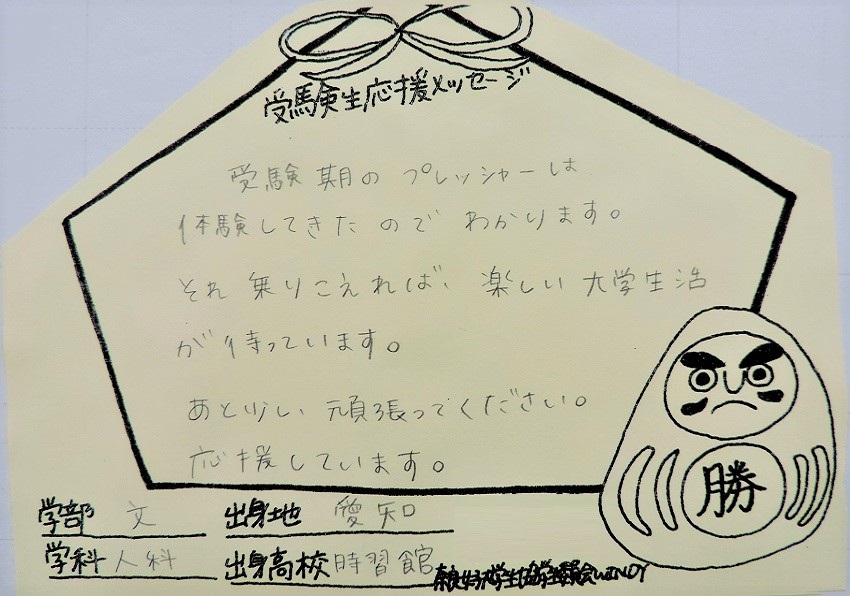 受験生応援メッセージ
受験期のプレッシャーは
体験してきたのでわかります。
それ乗りこえれば、楽しい大学生活
が待っています。
あと少し頑張ってください。
応援しています。
勝
学部 文 出身地 愛知
学科 人科 出身高校 時習館
大学生協学生委員会WINDY